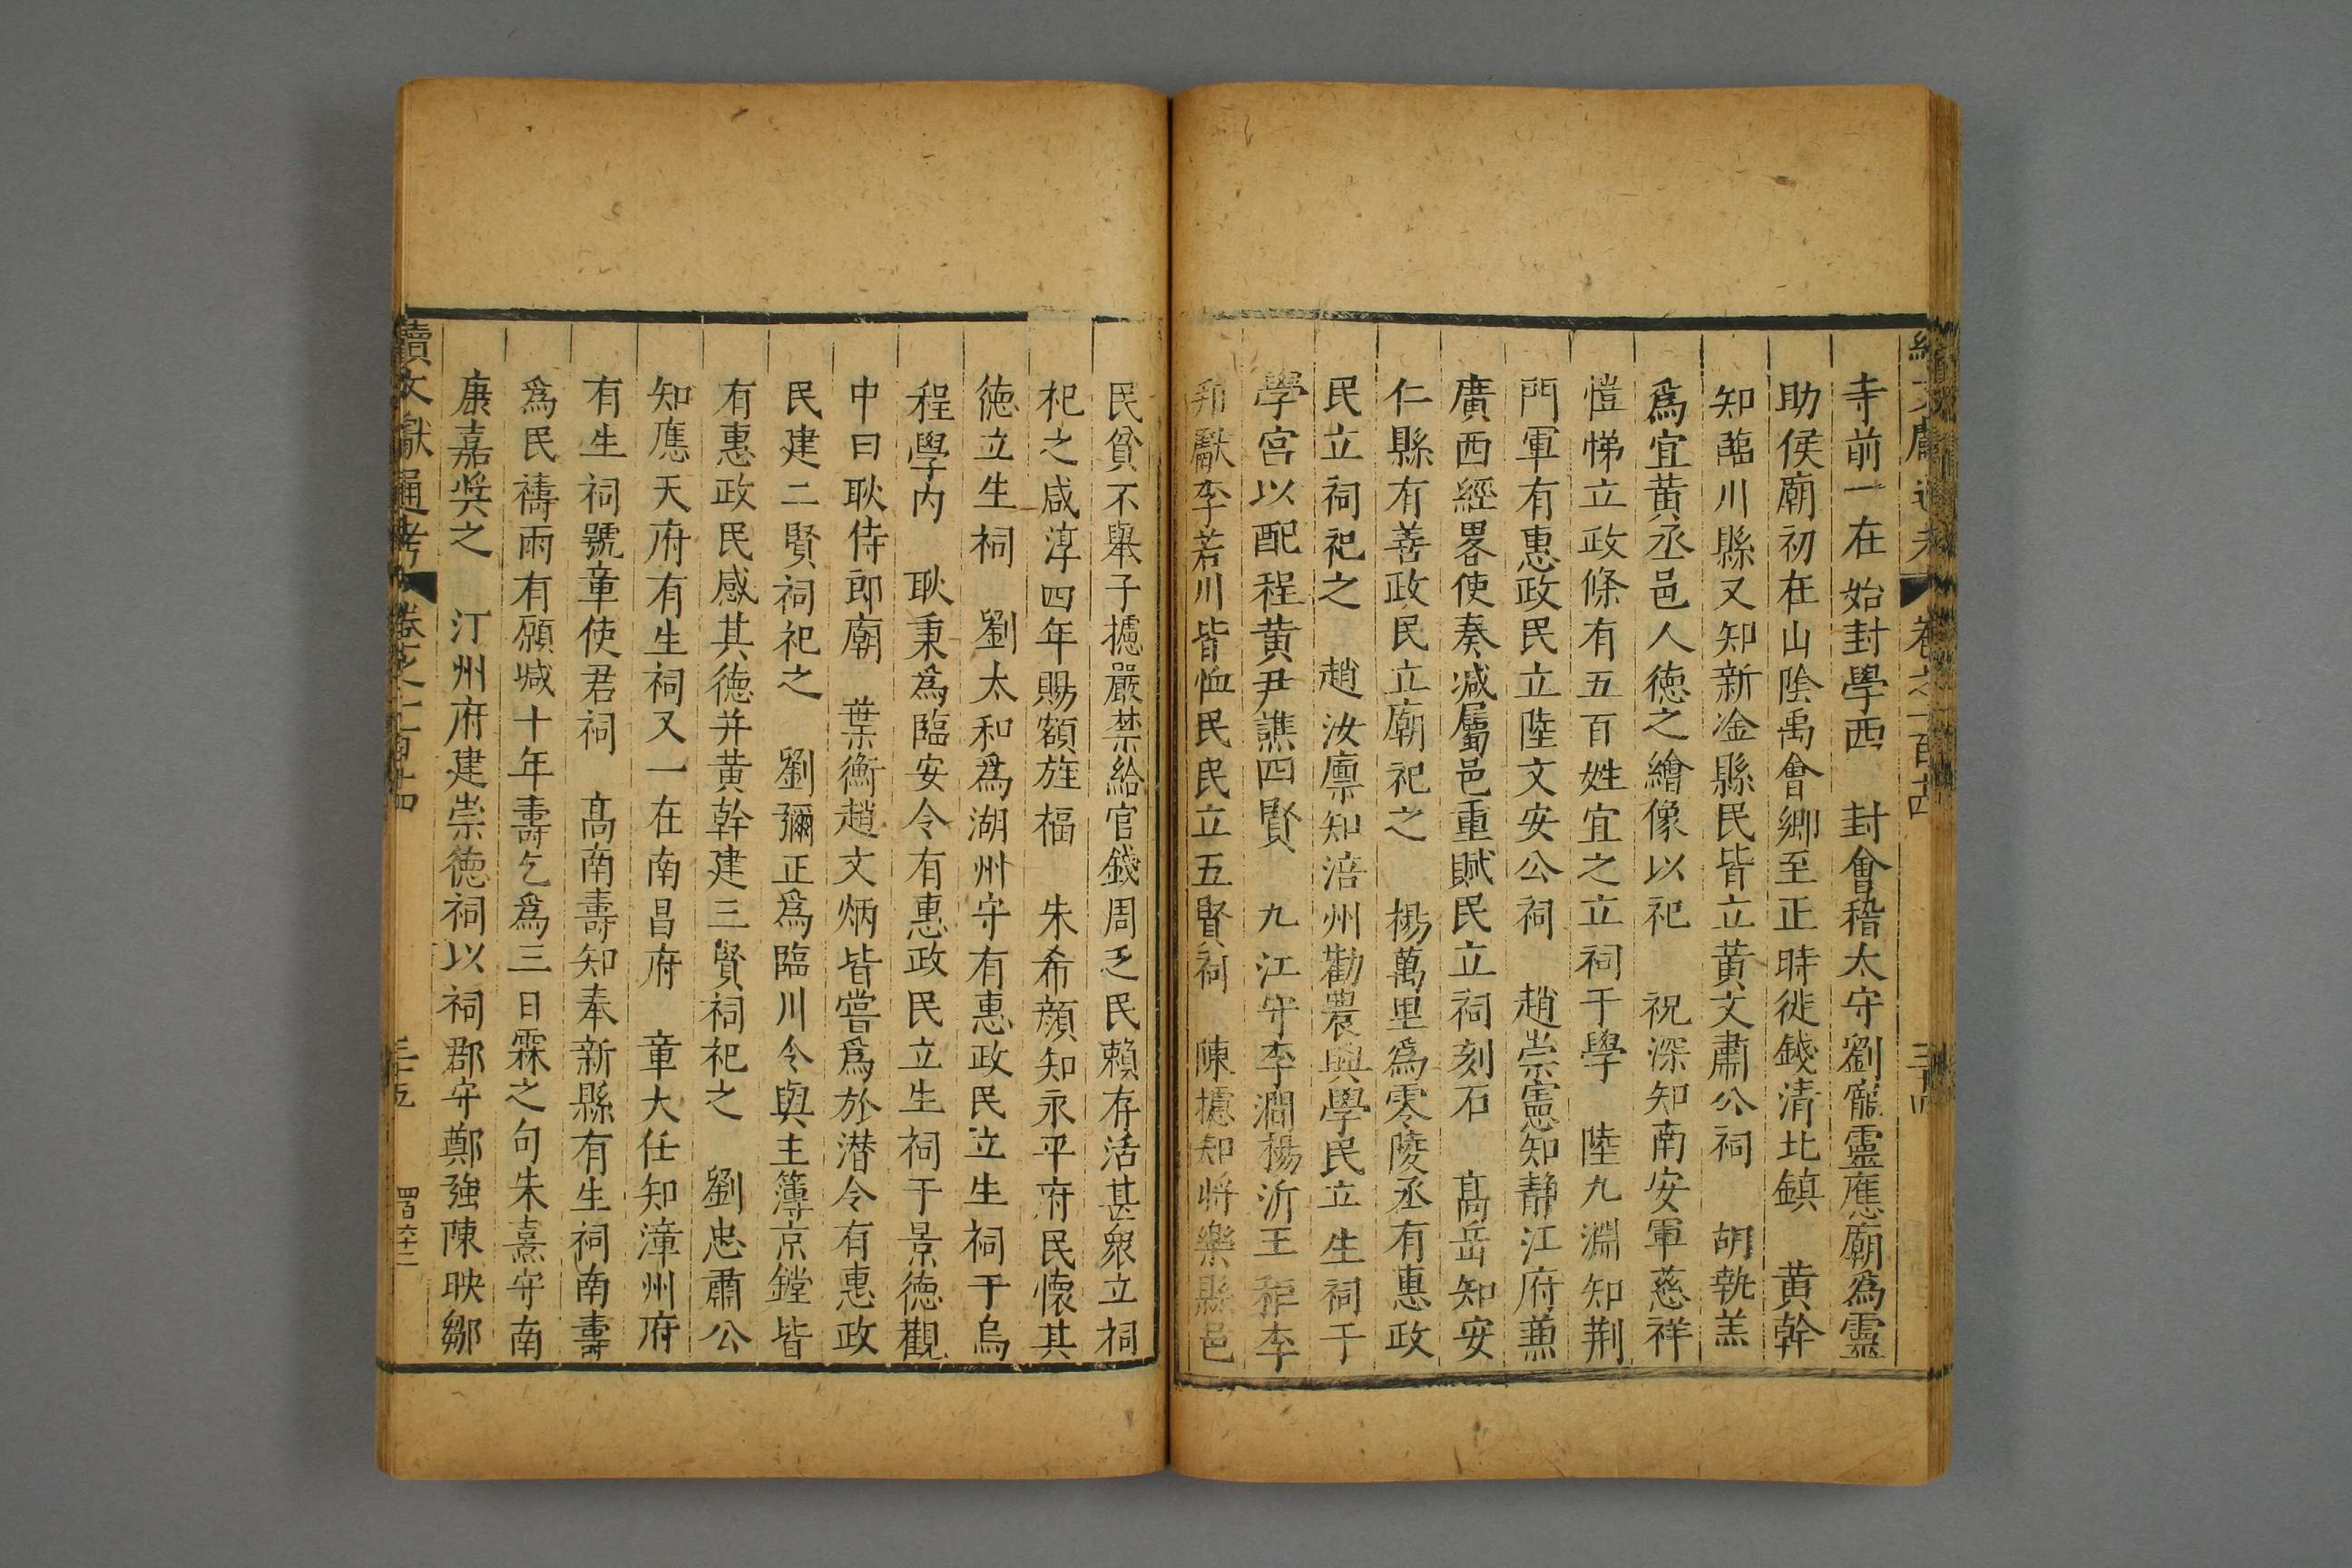 寺前一在始封學西　封會稽太守劉寵靈應廟爲靈
助侯廟初在山陰禹會鄉至正時徙錢清北鎮　黄幹
知臨川縣又知新淦縣民皆立黄文肅公祠　胡執羔
爲宜黄丞邑人徳之繪像以祀　祝深知南安軍慈祥
愷悌立政條有五百姓宜之立祠于學　陸九淵知荆
門軍有惠政民立陸文安公祠　趙崇憲知靜江府兼
廣西經畧使奏减屬邑重賦民立祠刻石　髙岳知安
仁縣有善政民立廟祀之　楊萬里爲零陵丞有惠政
民立祠祀之　趙汝廪知涪州勸農興學民立生祠于
學宮以配程黄尹譙四賢　九江守李澗楊沂王秬李
邦獻李若川皆恤民民立五賢祠　陳攄知將樂縣邑
民貧不舉子攄嚴禁給官錢周乏民賴存活甚衆立祠
祀之咸淳四年賜額旌福　朱希顔知永平府民懷其
徳立生祠　劉太和爲湖州守有惠政民立生祠于烏
程學内　耿秉爲臨安令有惠政民立生祠于景徳觀
中曰耿侍郎廟　葉衡趙文炳皆嘗爲於潜令有惠政
民建二賢祠祀之　劉彌正爲臨川令與主簿京鏜皆
有惠政民感其徳并黄幹建三賢祠祀之　劉忠肅公
知應天府有生祠又一在南昌府　章大任知漳州府
有生祠號章使君祠　髙南壽知奉新縣有生祠南壽
爲民禱雨有願减十年壽乞爲三日霖之句朱熹守南
康嘉奬之　汀州府建崇徳祠以祠郡守鄭強陳映鄒
續文獻通考　卷之一百十四　三十五　四百六十二